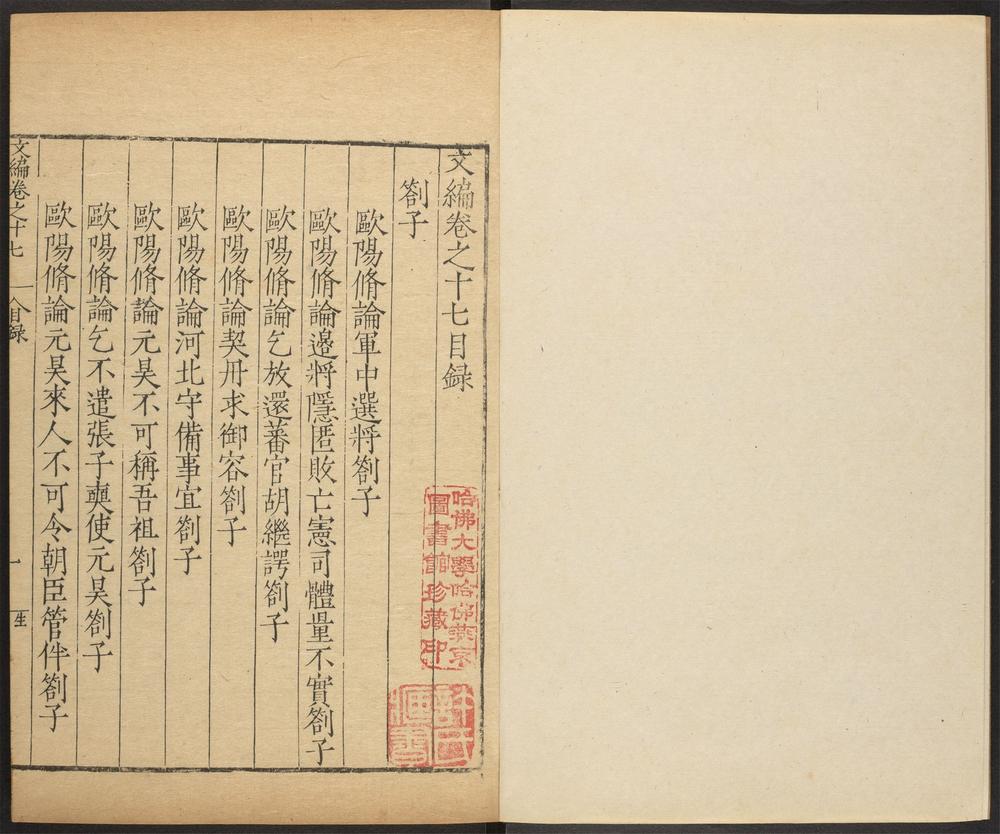 文編卷之十七目録
劄子
歐陽脩論軍中選將劄子
歐陽脩論邉將隱匿敗亡憲司體量不實劄子
歐陽脩論乞放還蕃官胡繼諤劄子
歐陽脩論契丹求御容劄子
歐陽脩論河北守備事宜劄子
歐陽脩論元昊不可稱吾祖劄子
歐陽脩論乞不遣張子奭使元昊劄子
歐陽脩論元昊來人不可令朝臣管伴劄子
文編卷之十七
目録
一
哈佛大學哈佛燕京
圖書館珍藏印